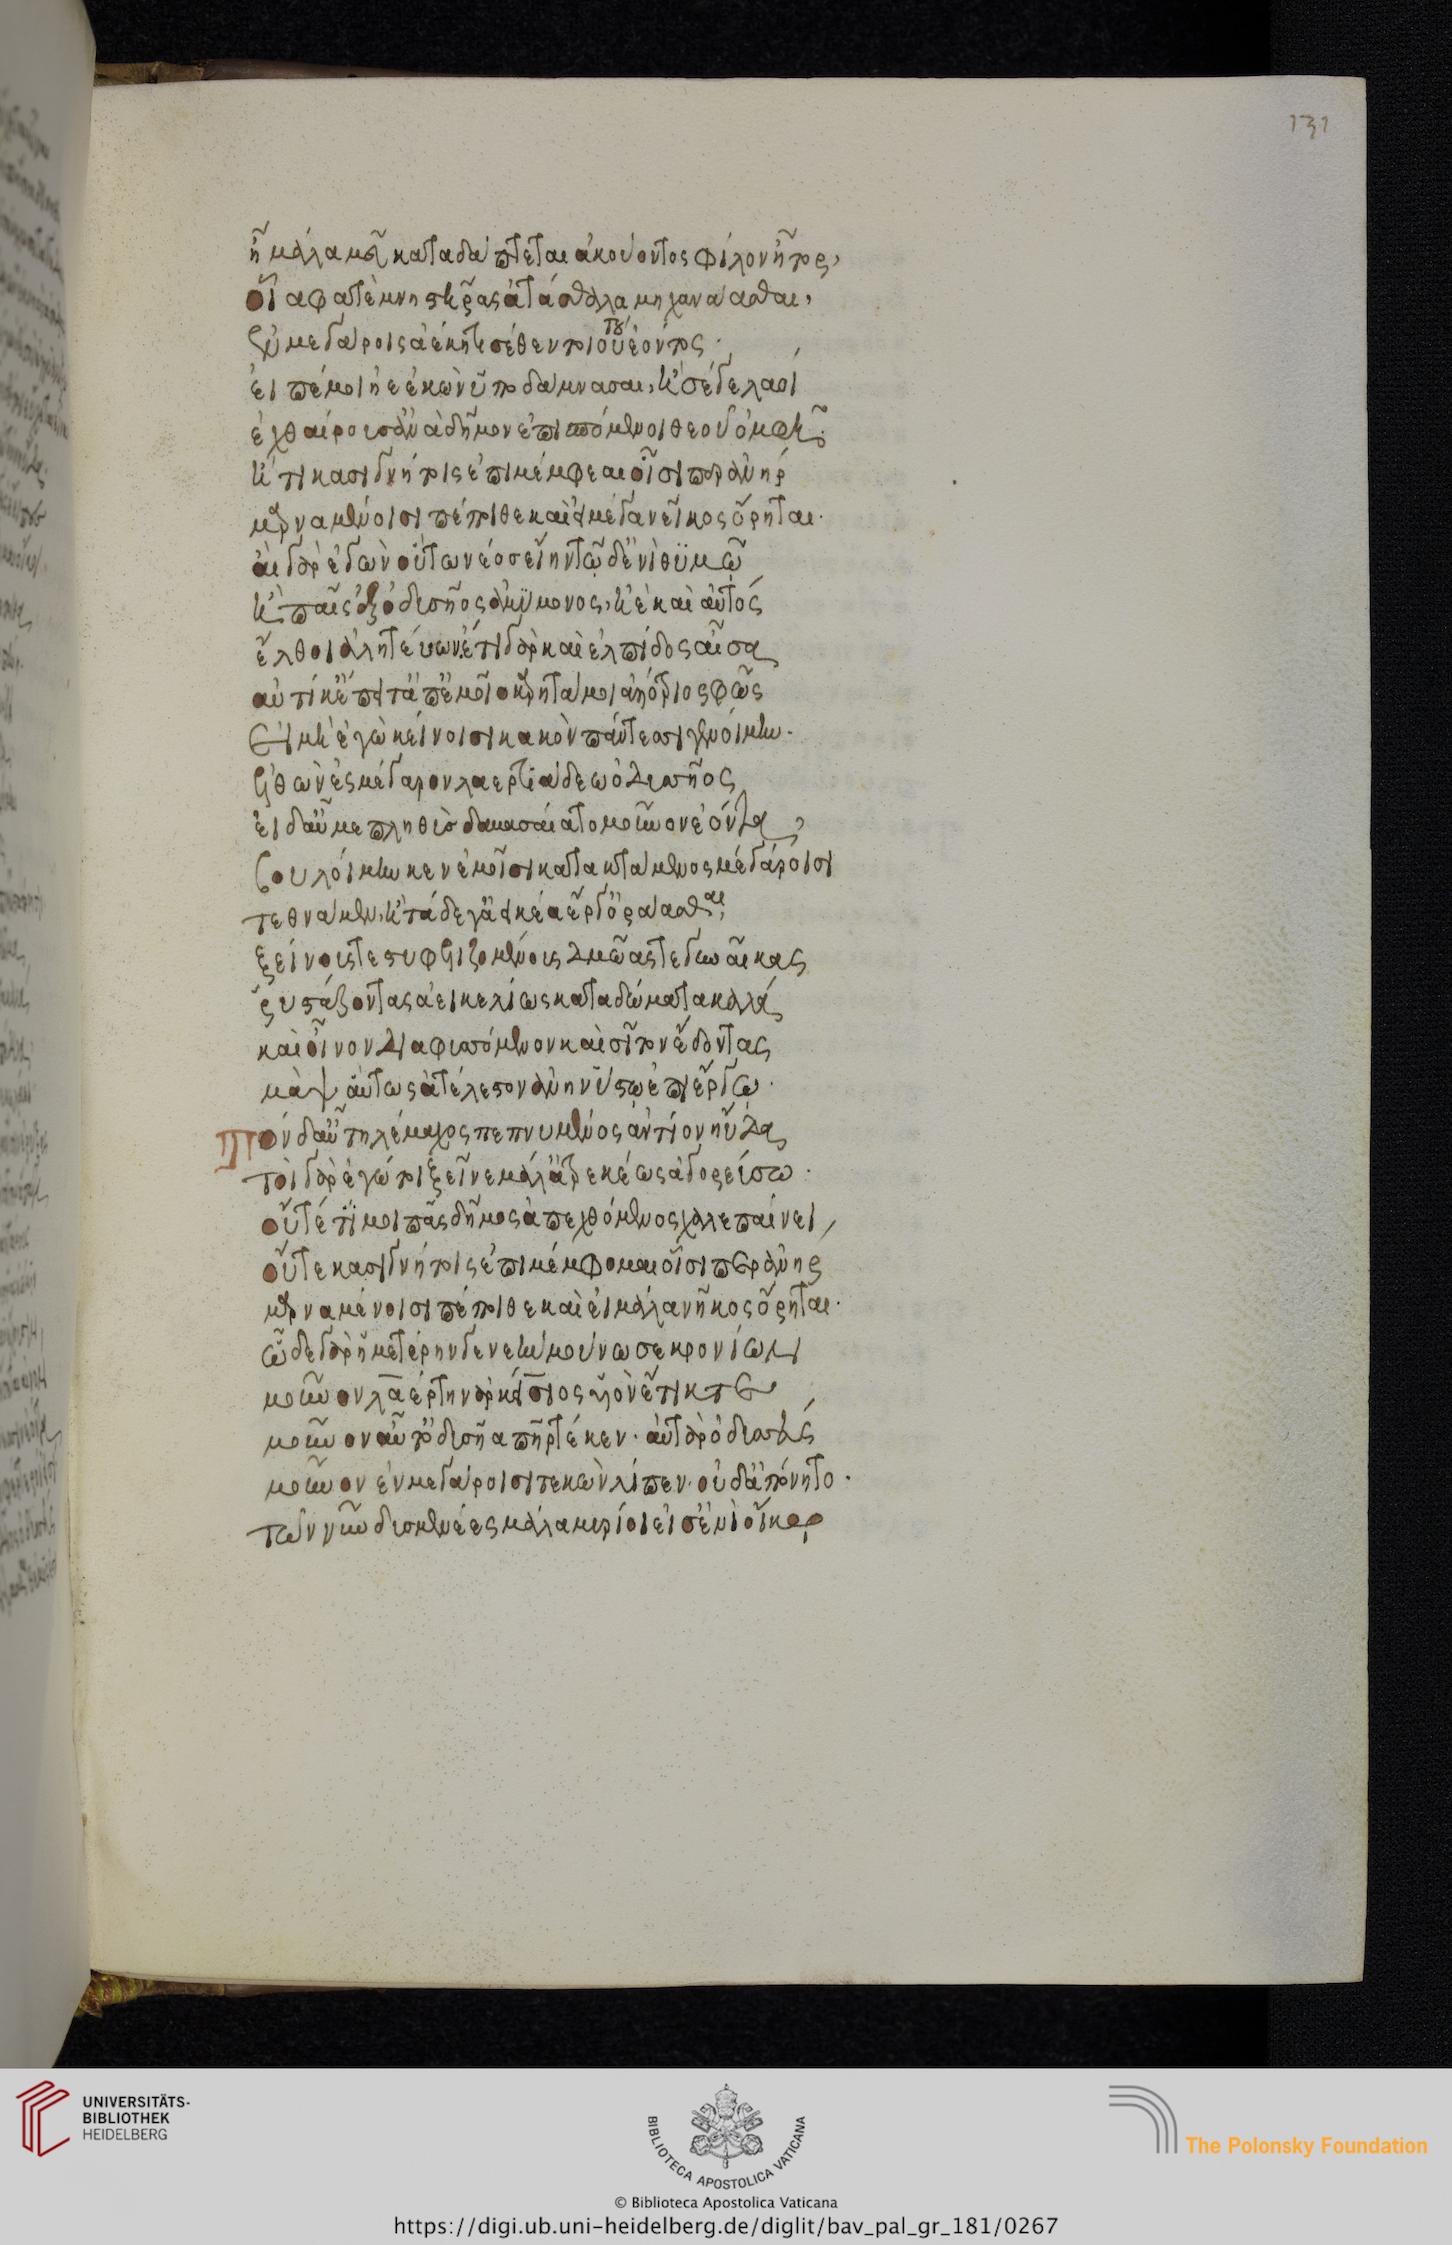 ἦ μάλα μοῦ καταδάπτεται ἀκούοντος φίλον ἦτορ,
οἷα φατὲ μνηστῆρας ἀτάσθαλα μηχανάασθαι,
ἐν μεγάροις ἀέκητι σέθεν τοιούτου ἐόντος.
εἰπέ μοι ἠὲ ἑκὼν ὑποδάμνασαι, ἤ σέ γε λαοὶ
ἐχθαίρουσ' ἀνὰ δῆμον ἐπισπόμενοι θεοῦ ὀμφῆ.
ἤ τι κασιγνήτοις ἐπιμέμφεαι οἷσι περ ἀνήρ
μαρναμένοισι πέποιθε καὶ εἰ μέγα νεῖκος ὄρηται.
αἲ γὰρ ἐγὼν οὕτω νέος εἴην τῷδ' ἐνὶ θυμῷ
ἢ παῖς ἐξ ὀδυσῆος ἀμύμονος, ἠὲ καὶ αὐτός
ἔλθοι ἀλητεύων. ἔτι γὰρ καὶ ἐλπίδος αἶσα
αὐτίκ' ἔπειτ' ἀπ' ἐμοῖο κάρη τάμοι ἀλλότριος φῶς
εἰ μὴ ἐγὼ κείνοισι κακὸν πάντεσσι γενοίμην.
ἐλθὼν ἐς μέγαρον λαερτιάδεω ὀδυσῆος
εἰ δ' αὖ με πληθύϊ δαμασαίατο μοῦνον ἐόντα,
βουλοίμην κεν ἐμοῖσι κατακτάμενος μεγάροισι
τεθνάμεν, ἢ τάδε γ' αἰὲν ἀεικέα ἔργ' ὁράασθαι,
ξείνους τε στυφελιζομένους δμωάς τε γυναῖκας
ῥυστάζοντας ἀεικελίως κατὰ δώματα καλά
καὶ οἶνον διαφυσσόμενον καὶ σῖτον ἔδοντας
μὰψ αὔτως ἀτέλεστον ἀνηνύστῳ ἐπὶ ἔργῳ.
Τὸν δ' αὖ τηλέμαχος πεπνυμένος ἀντίον ηὔδα
τοὶ γὰρ ἐγώ τοι ξεῖνε μάλ' ἀτρεκέως ἀγορεύσω.
οὔτέ τί μοι πᾶς δῆμος ἀπεχθόμενος χαλεπαίνει,
οὔτε κασιγνήτοις ἐπιμέμφομαι οἷσι περ ἀνὴρ
μαρναμένοισι πέποιθε καὶ εἰ μάλα νῆκος ὄρηται.
ὧδε γὰρ ἡμετέρην γενεὴν μούνωσε κρονίων
μοῦνον λαέρτην ἀρκείσιος υἱὸν ἔτικτε
μοῦνον αὖτ' ὀδυσῆα πατὴρ τέκεν. αὐτὰρ ὀδυσσεύς
μοῦνον ἐν μεγάροισι τεκὼν λίπεν. οὐδ' ἀπόνητο.
τῶν νῦν δυσμενέες μάλα μυρίοι εἴσ' ἐνὶ οἴκῳ
131
UNIVERSITÄTS-
BIBLIOTHEK
HEIDELBERG
BIBLIOTECA APOSTOLICA VATICANA
The Polonsky Foundation
© Biblioteca Apostolica Vaticana
https://digi.ub.uni-heidelberg.de/diglit/bav_pal_gr_181/0267